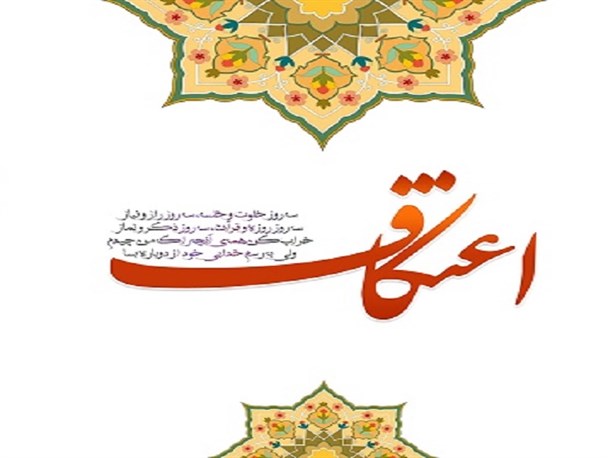 اعتکاف
سه روز خلوت و خلسه، سه روز راز و نیاز
سه روز روزه و قرائت، سه روز ذکر و نماز
خراب کن همه‌ی آنچه را که من چیدم
ولی به رسم خدایی خود از دوباره بساز